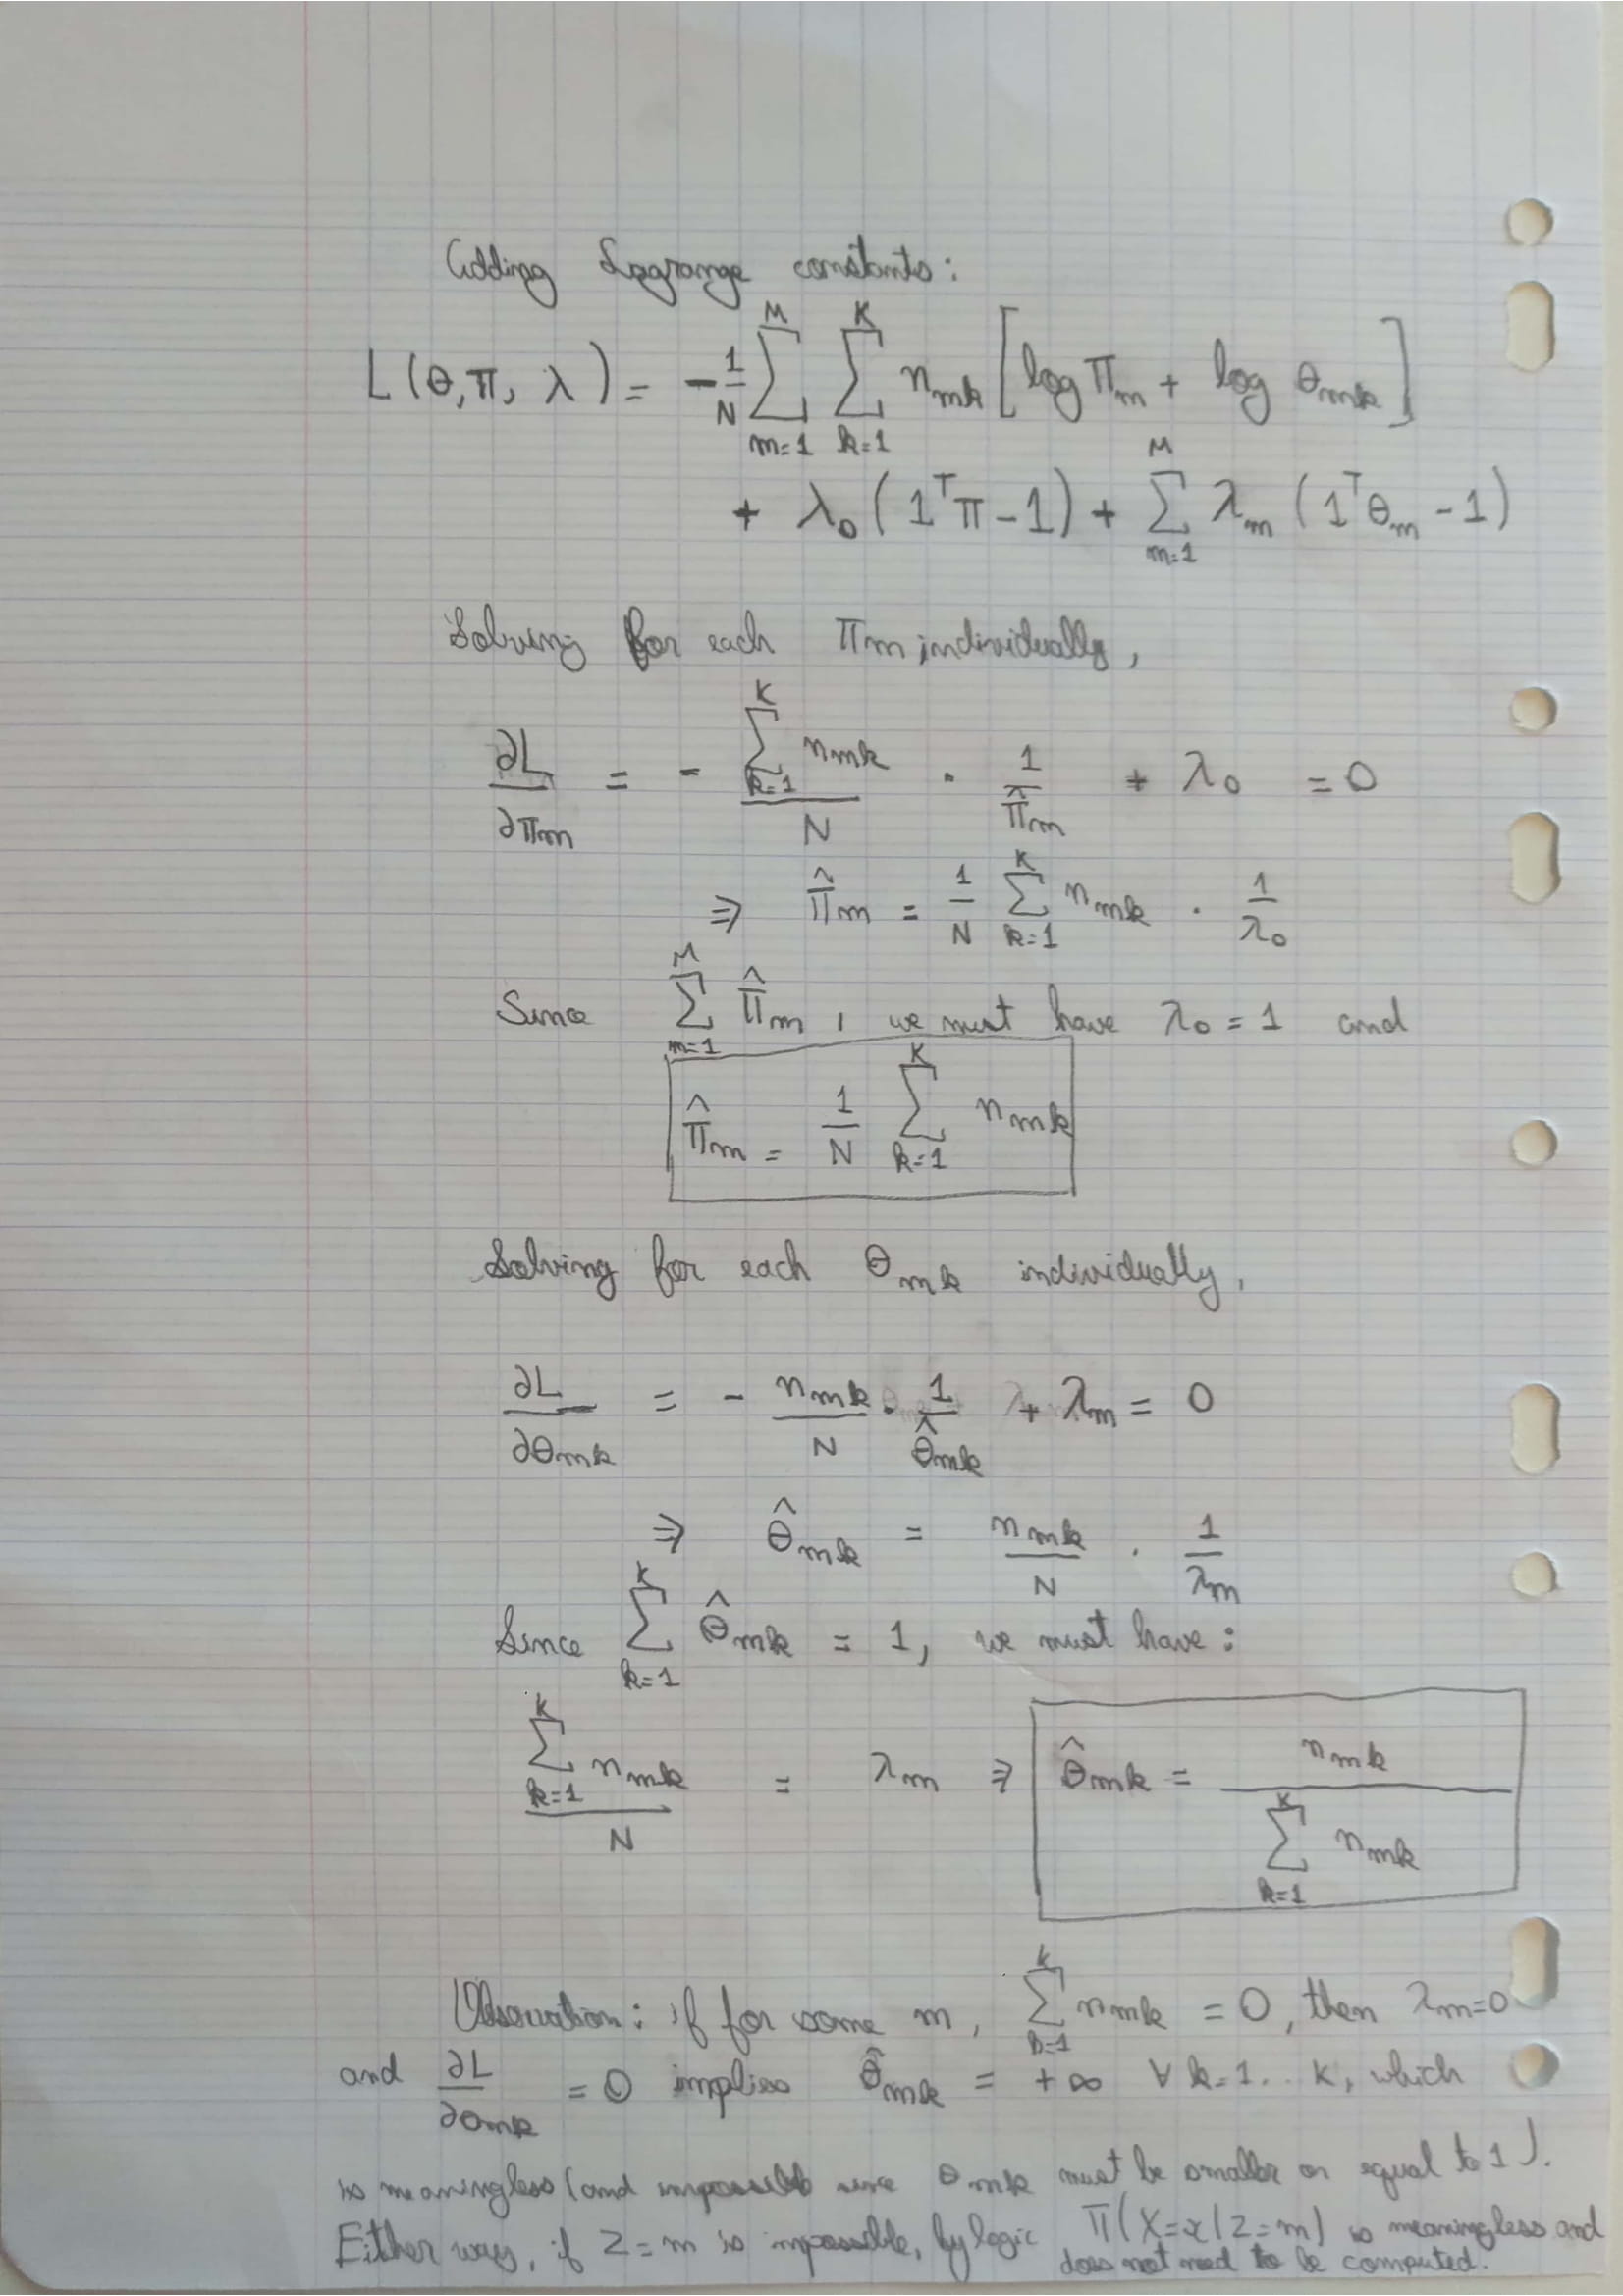 Adding Lagrange constants:
L(θ,π, λ) = -1/N Σ_{m=1}^{M} Σ_{k=1}^{K} n_{mk} [log π_m + log θ_{mk}]
+ λ_0 (1^T π - 1) + Σ_{m=1}^{M} λ_m (1^T θ_m - 1)
Solving for each π_m individually,
∂L/∂π_m = - (Σ_{k=1}^{K} n_{mk})/N · 1/π̂_m + λ_0 = 0
⇒ π̂_m = 1/N Σ_{k=1}^{K} n_{mk} · 1/λ_0
Since Σ_{m=1}^{M} π̂_m , we must have λ_0 = 1 and
π̂_m = 1/N Σ_{k=1}^{K} n_{mk}
Solving for each θ_{mk} individually,
∂L/∂θ_{mk} = - n_{mk}/N · 1/θ̂_{mk} + λ_m = 0
⇒ θ̂_{mk} = n_{mk}/N · 1/λ_m
Since Σ_{k=1}^{K} θ̂_{mk} = 1, we must have:
(Σ_{k=1}^{K} n_{mk})/N = λ_m ⇒ θ̂_{mk} = n_{mk}/(Σ_{k=1}^{K} n_{mk})
Observation: if for some m, Σ_{k=1}^{K} n_{mk} = 0, then λ_m=0
and ∂L/∂θ_{mk} = 0 implies θ̂_{mk} = +∞ ∀ k=1.. K, which
is meaningless (and impossible since θ_{mk} must be smaller or equal to 1).
Either way, if Z=m is impossible, by logic π(X=x|Z=m) is meaningless and
does not need to be computed.